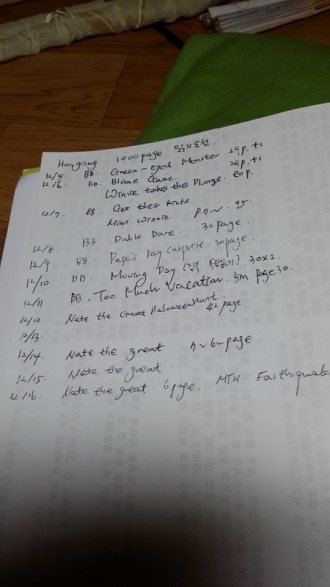 Hangang 1000page 읽기도전
12/5 BB. Green-Eyed Monster 29p. +1
12/6 BB. Blame Game. 29p. +1
Winnie takes the Plunge. 20p.
12/7 BB Get the
Miss Winnie
12/8 BB Duble Dare. 30page.
12/9 BB. Papa's Day surprise. 30page.
12/10 BB. Moving Day 30x2.
12/11 BB. Too Much Vacation. 5m page30.
12/12 Nate the Great Haloween Hunt.
12/13. 42page
12/14. Nate the great 7~6~page
12/15. Nate the great.
12/16. Nate the great. 6page. MTH. Earthquake